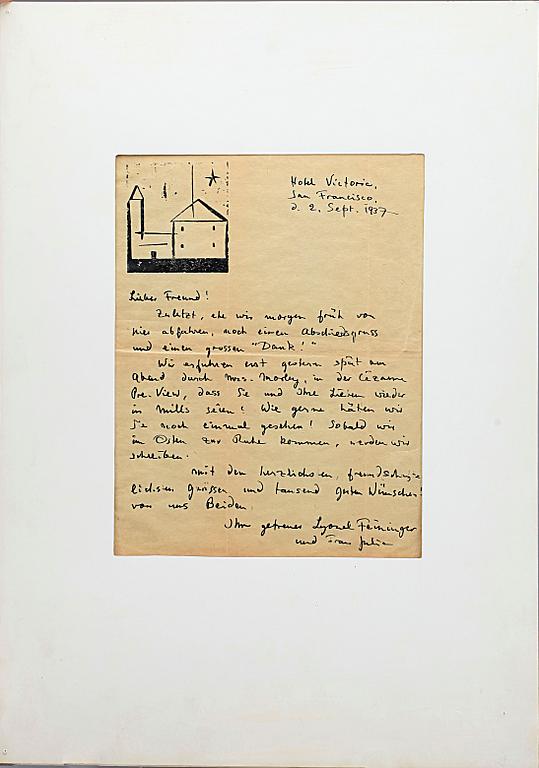 Hotel Victoria,
San Francisco,
d. 2. Sept. 1937
Lieber Freund!
Zuletzt, ehe wir morgen früh von
hier abfahren, noch einen Abschiedsgruss
und einen grossen "Dank!"
Wir erfuhren erst gestern spät am
Abend durch Mrs. Morley, in der Cézanne
Pre-View, dass Sie und Ihre Lieben wieder
in Mills seien! Wie gerne hätten wir
Sie noch einmal gesehen! Sobald wir
im Osten zur Ruhe kommen, werden wir
schreiben.
Mit den herzlichsten, freundschaft-
lichsten Grüssen und tausend guten Wünschen!
von uns Beiden,
Ihr getreuer Lyonel Feininger
und Frau Julia